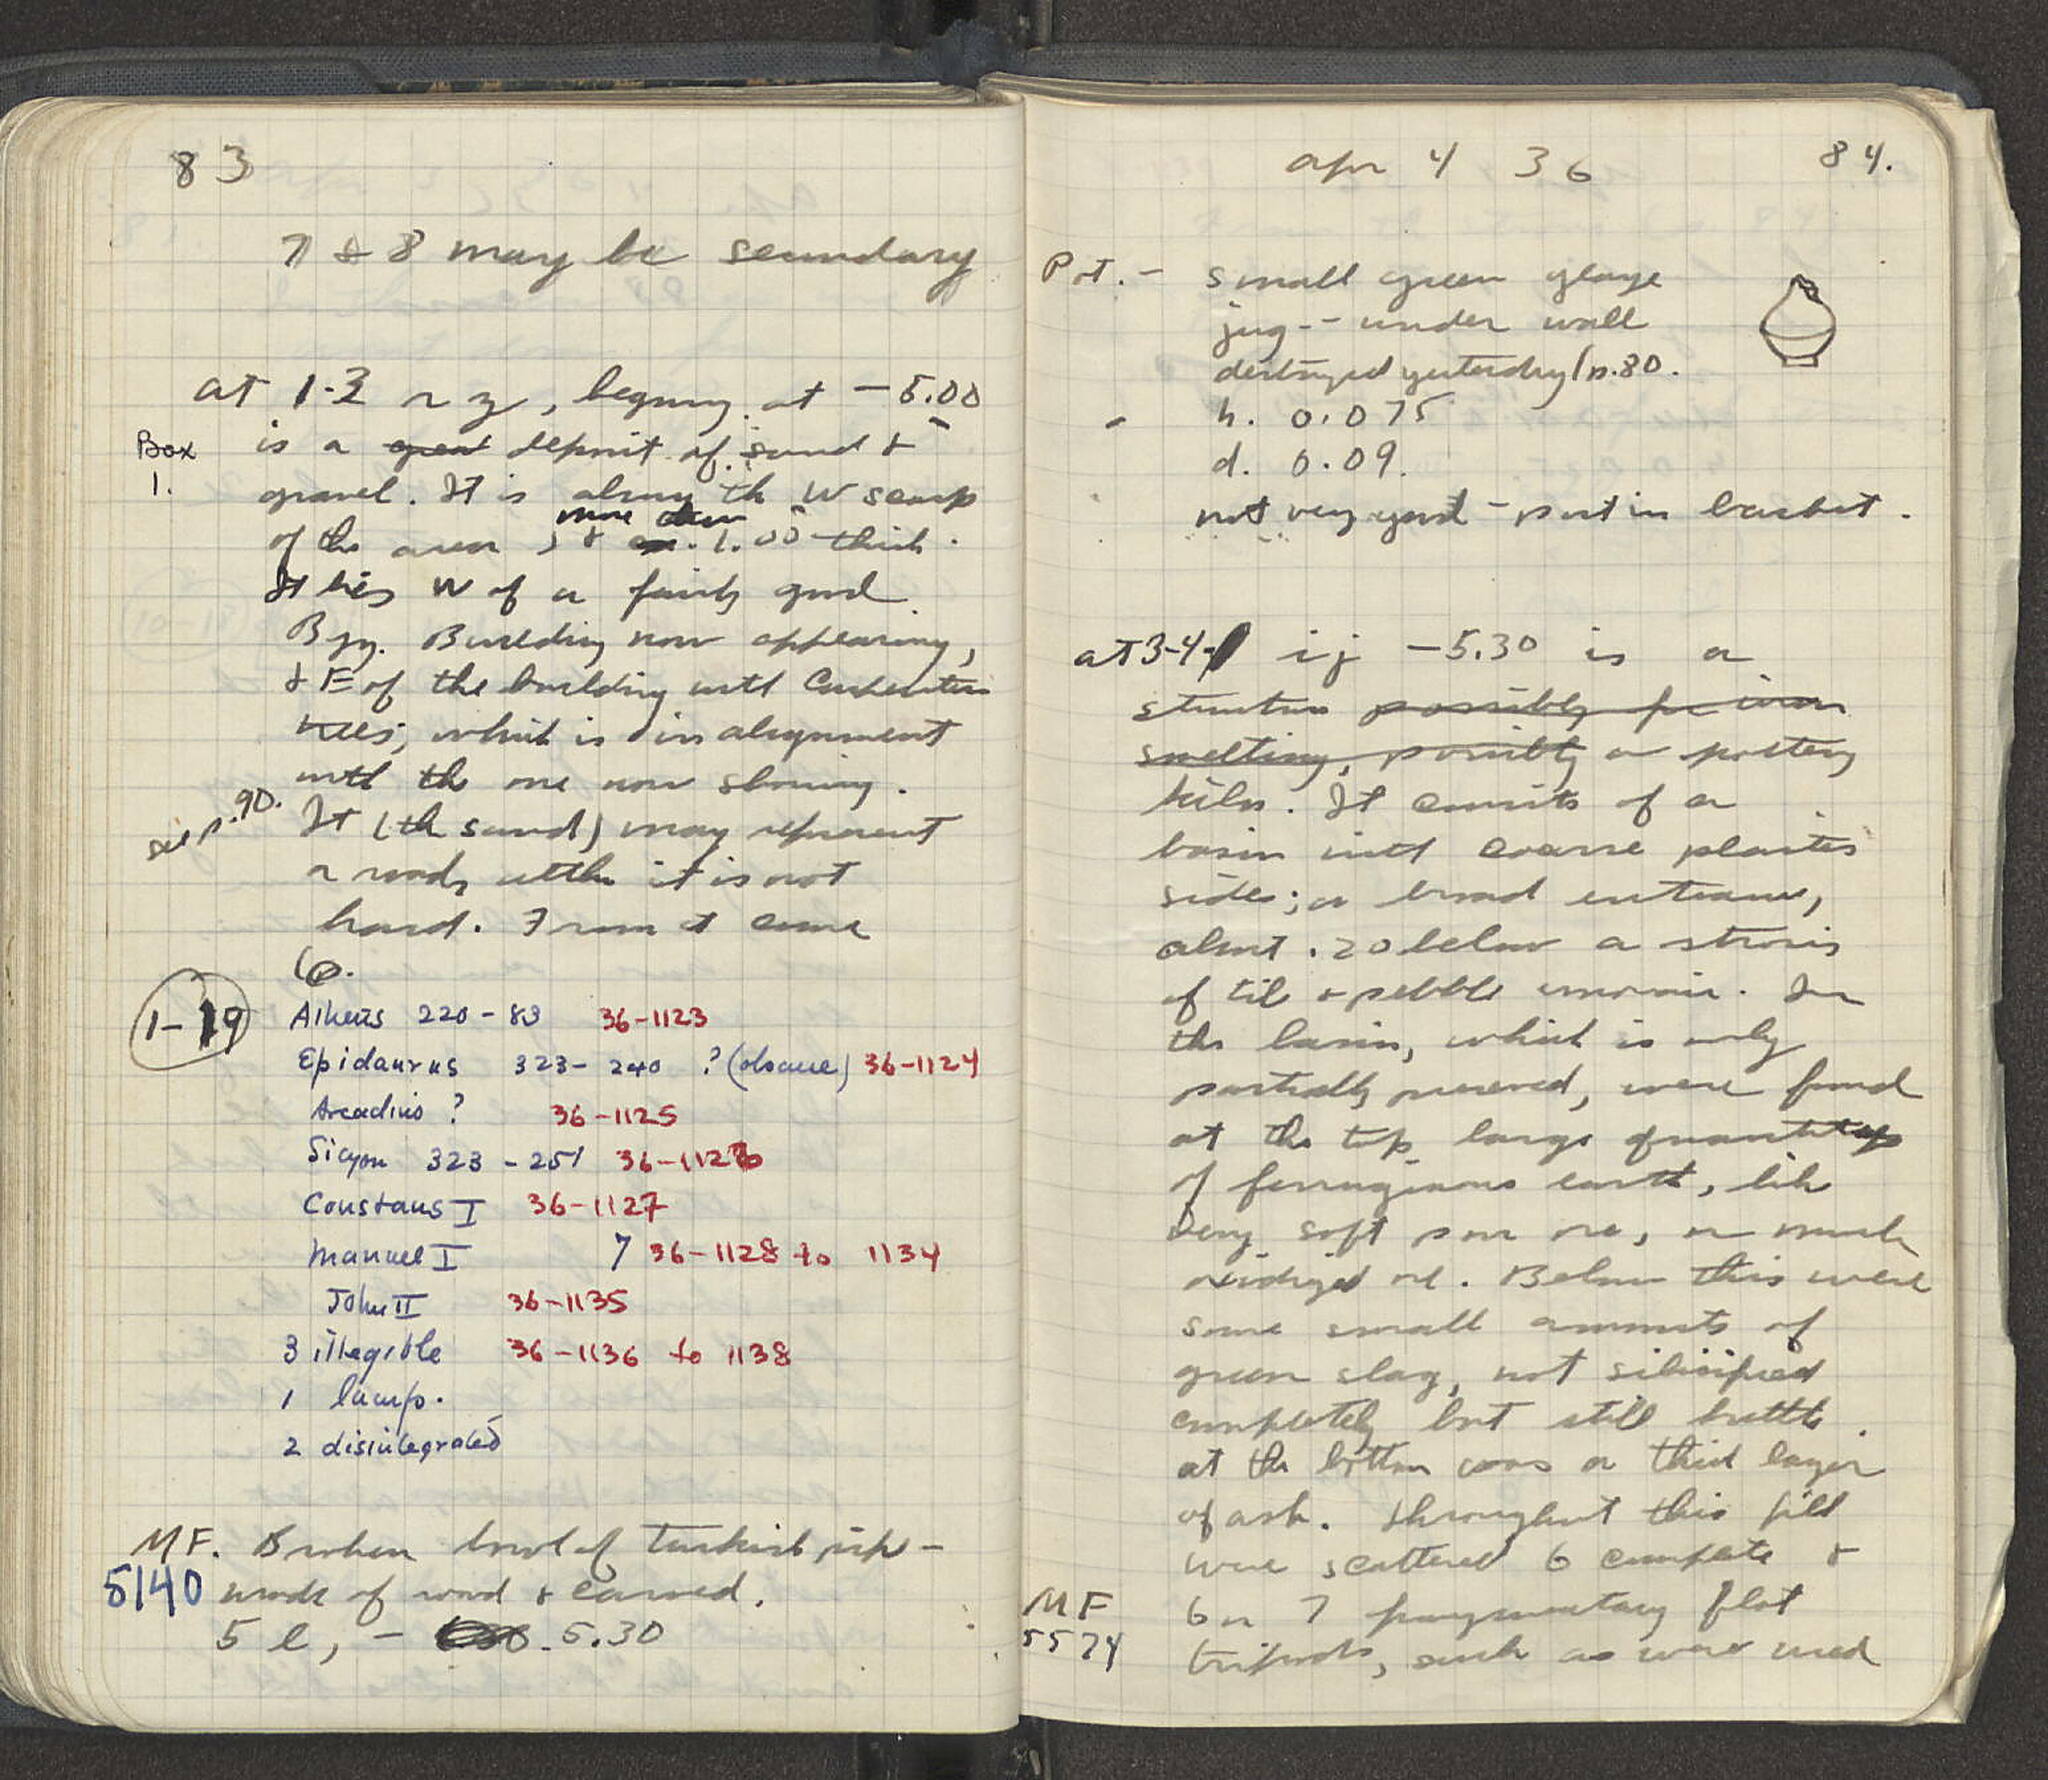 83
7 & 8 may be secundary
at 1-3 n z, beginng at -5.00
Box is a great deposit of sand &
1. gravel. It is along the W scarp
more than
of the area, & ca. 1.00 thick.
It lies W of a fairly good
Byz. Building now appearing,
& E of the building with Carpenters
which is in alignment
with the one now showing.
see p. 90.
It (the sand) may represent
a road, altho it is not
hard. From it come
1-19
Athens 220-83 36-1123
Epidaurus 323-240 ? (obscure) 36-1124
Arcadius ? 36-1125
Sicyon 323-251 36-1126
Constans I 36-1127
Manuel I 7 36-1128 to 1134
John II 36-1135
3 illegible 36-1136 to 1138
1 lamp.
2 disintegrated
MF. Broken bowl of Turkish pipe -
5140 made of wood & carved.
5 l, - 5.30
apr 4 36
84.
Pot. - small green glaze
jug -- under wall
destroyed yesterday (p.80.
h. 0.075
d. 0.09.
not very good - put in basket.
at 3-4 ij -5.30 is a
structure possibly for iron
smelting, possibly a pottery
kiln. It consists of a
basin with coarse plaster
sides; a broad entrance,
about .20 below a stosis
of tile & pebble mosaic. In
the basin, which is only
partially preserved, were found
at the top large quantitys
of ferruginous earth, like
very soft poor ore, or much
oxidized ore. Below this were
some small amounts of
green slag, not silicified
completely but still brittle.
at the bottom was a thick layer
of ash. Throughout this fill
were scattered 6 complete &
MF 6 or 7 fragmentary flat
5574 tripods, such as were used